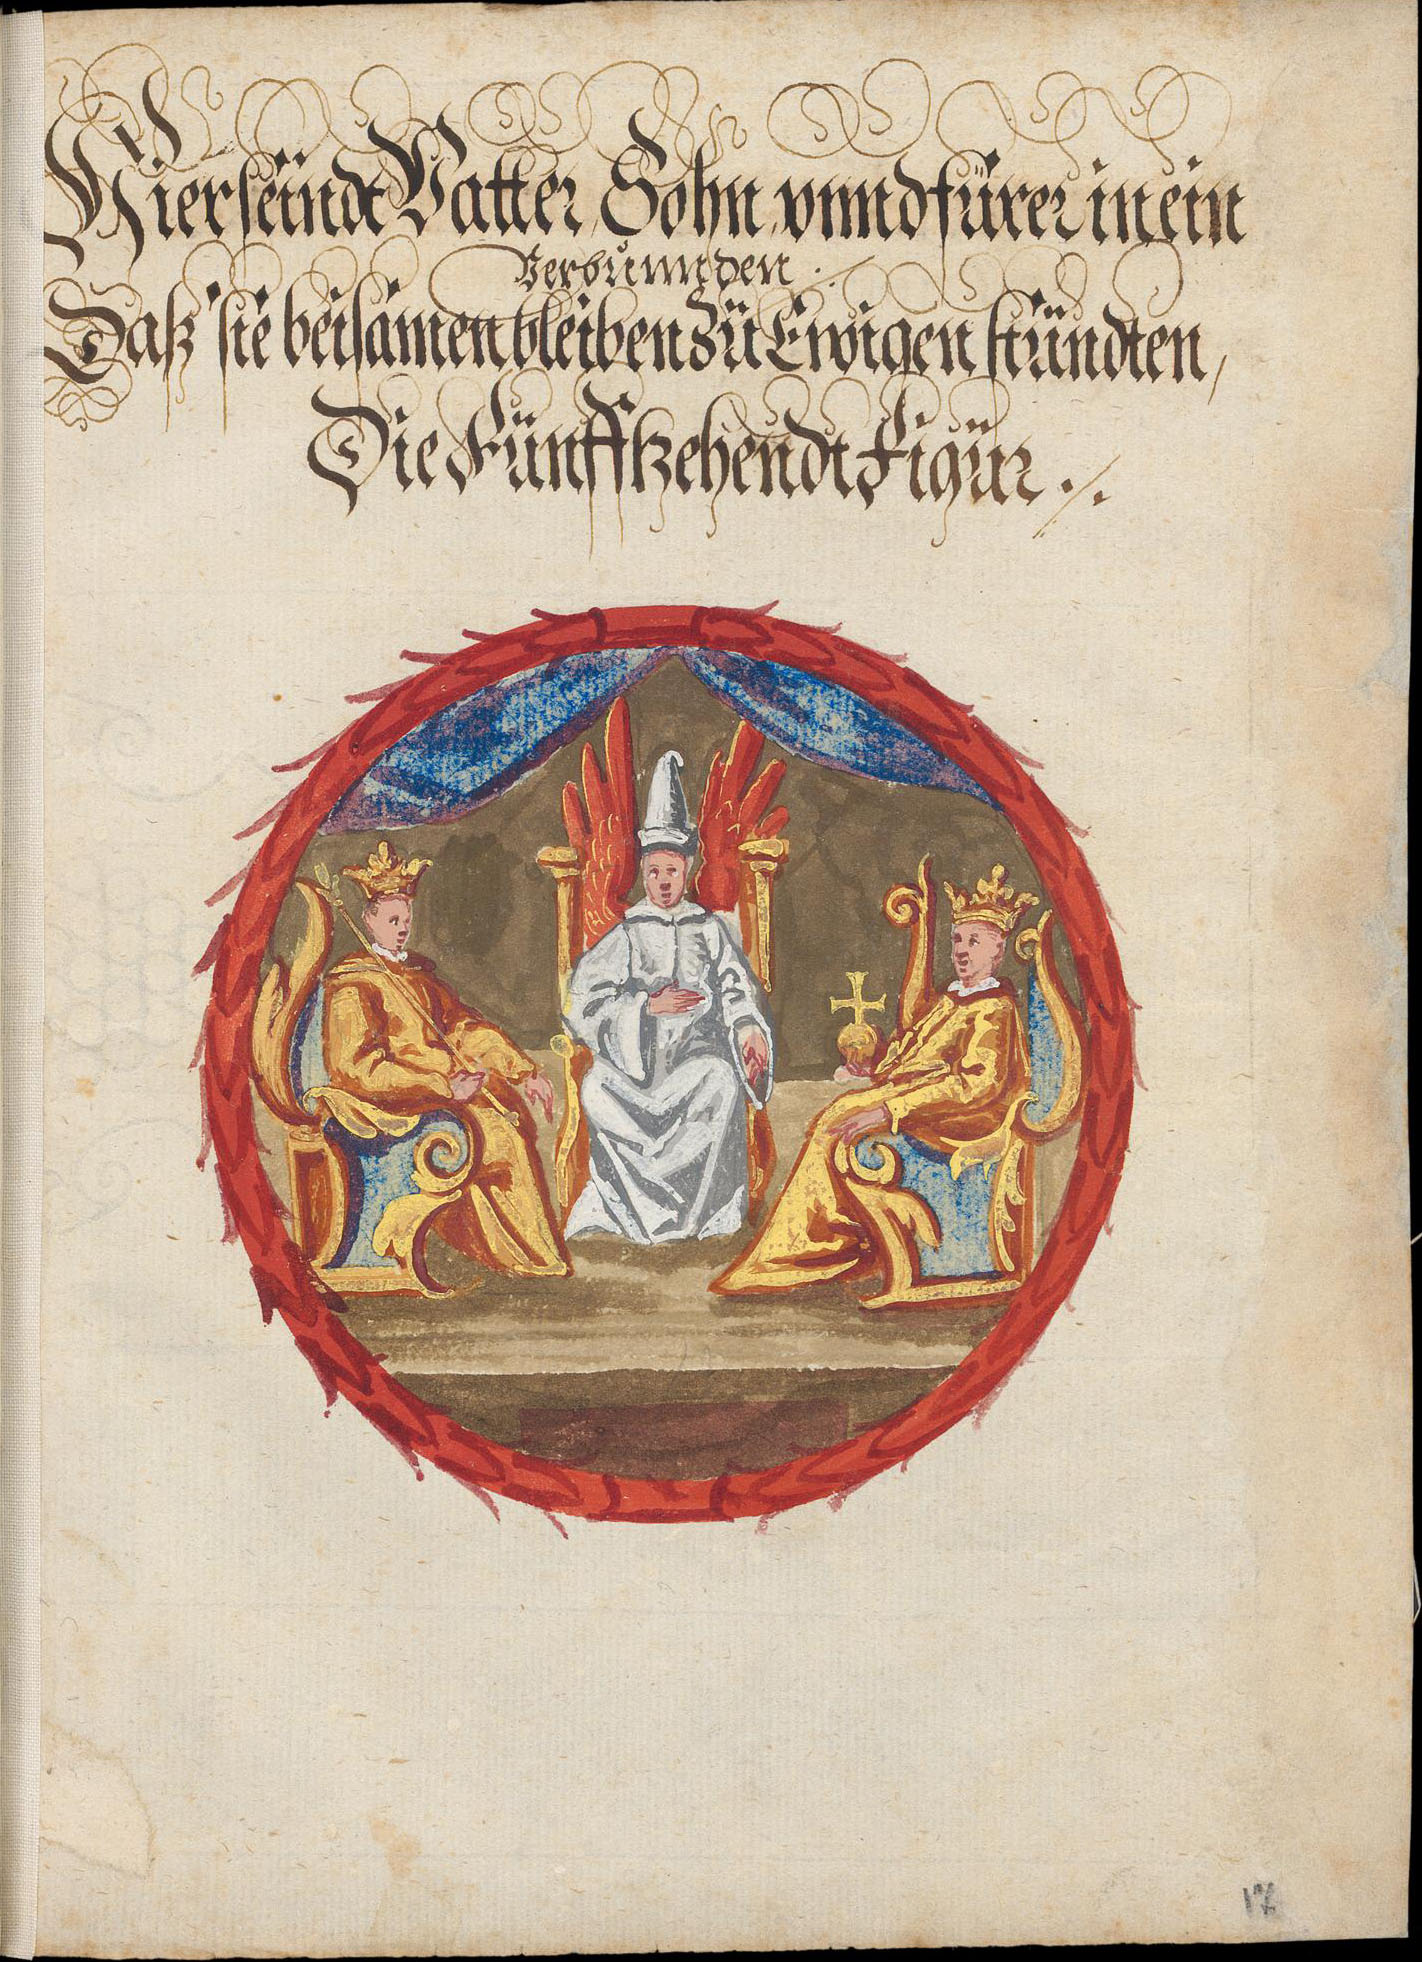 Hier seindt Vatter, Sohn, vnnd fürer in ein
Verbunnden ./.
Daß sie beisamen bleiben zů Ewigen stündten,
Die Fünfftzehendt Figür ./.